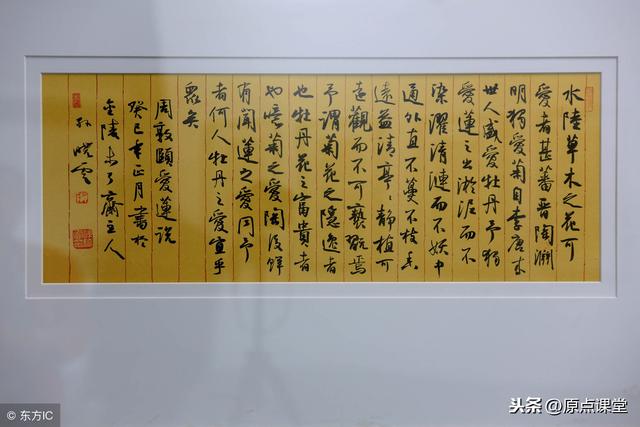 水陸草木之花可
愛者甚蕃晉陶淵
明獨愛菊自李唐来
世人盛愛牡丹予獨
愛蓮之出淤泥而不
染濯清漣而不妖中
通外直不蔓不枝香
遠益清亭静植可
遠觀而不可褻翫焉
予謂菊花之隱逸者
也牡丹花之富貴者
也噫菊之愛陶後鮮
有聞蓮之愛同予
者何人牡丹之愛宜乎
衆矣
周敦頤愛蓮説
癸巳年正月書於
金陵未了齋主人
孫曉雲
© 东方IC
头条 @原点课堂